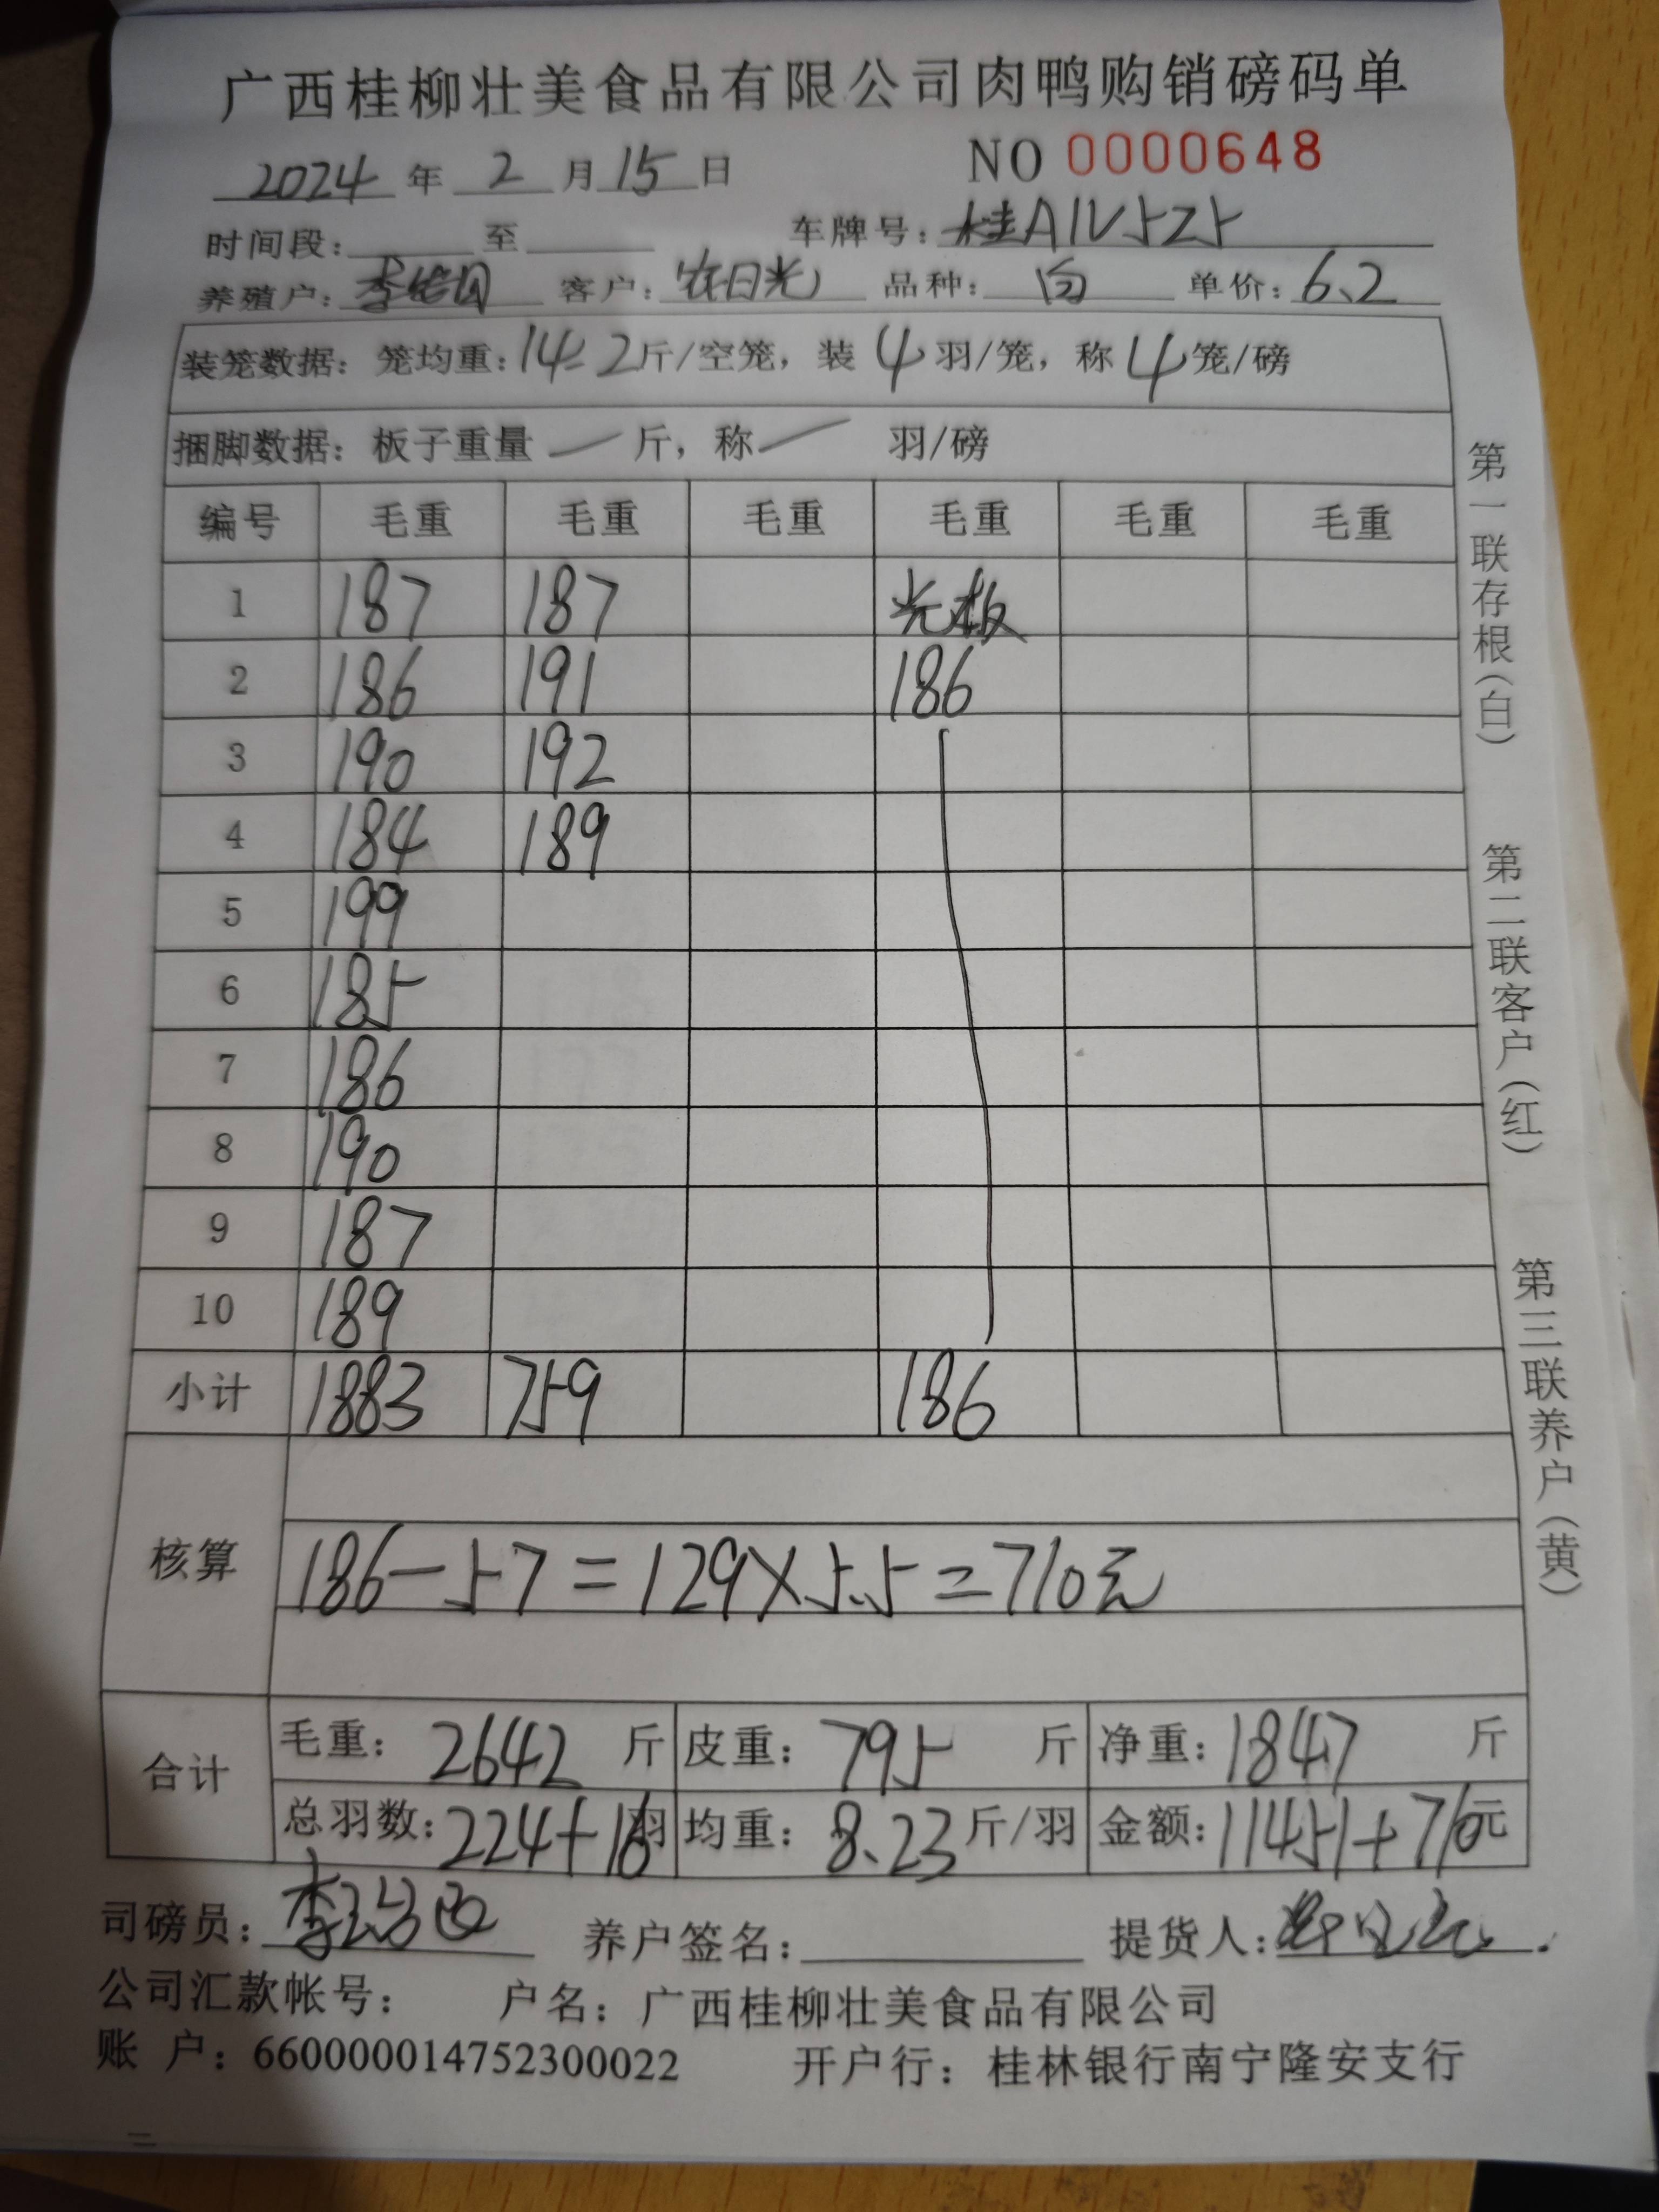 广西桂柳壮美食品有限公司肉鸭购销磅码单
2024 年 2 月 15 日 NO 0000648
时间段: 至 车牌号: 桂A1V5Z5
养殖户: 李 客户: 农日光 品种: 白 单价: 6.2
装笼数据: 笼均重: 14.2 斤/空笼, 装 4 羽/笼, 称 4 笼/磅
捆脚数据: 板子重量 — 斤, 称 — 羽/磅
编号 毛重 毛重 毛重 毛重 毛重 毛重
1 187 187 光板
2 186 191 186
3 190 192
4 184 189
5 199
6 185
7 186
8 190
9 187
10 189
小计 1883 759 186
核算
186-57=129×5.5=710元
合计
毛重: 2642 斤 皮重: 795 斤 净重: 1847 斤
总羽数: 224+16羽 均重: 8.23 斤/羽 金额: 11451+710元
司磅员: 李 养户签名: 提货人:
公司汇款帐号: 户名: 广西桂柳壮美食品有限公司
账 户: 660000014752300022 开户行: 桂林银行南宁隆安支行
第一联存根(白)
第二联客户(红)
第三联养户(黄)